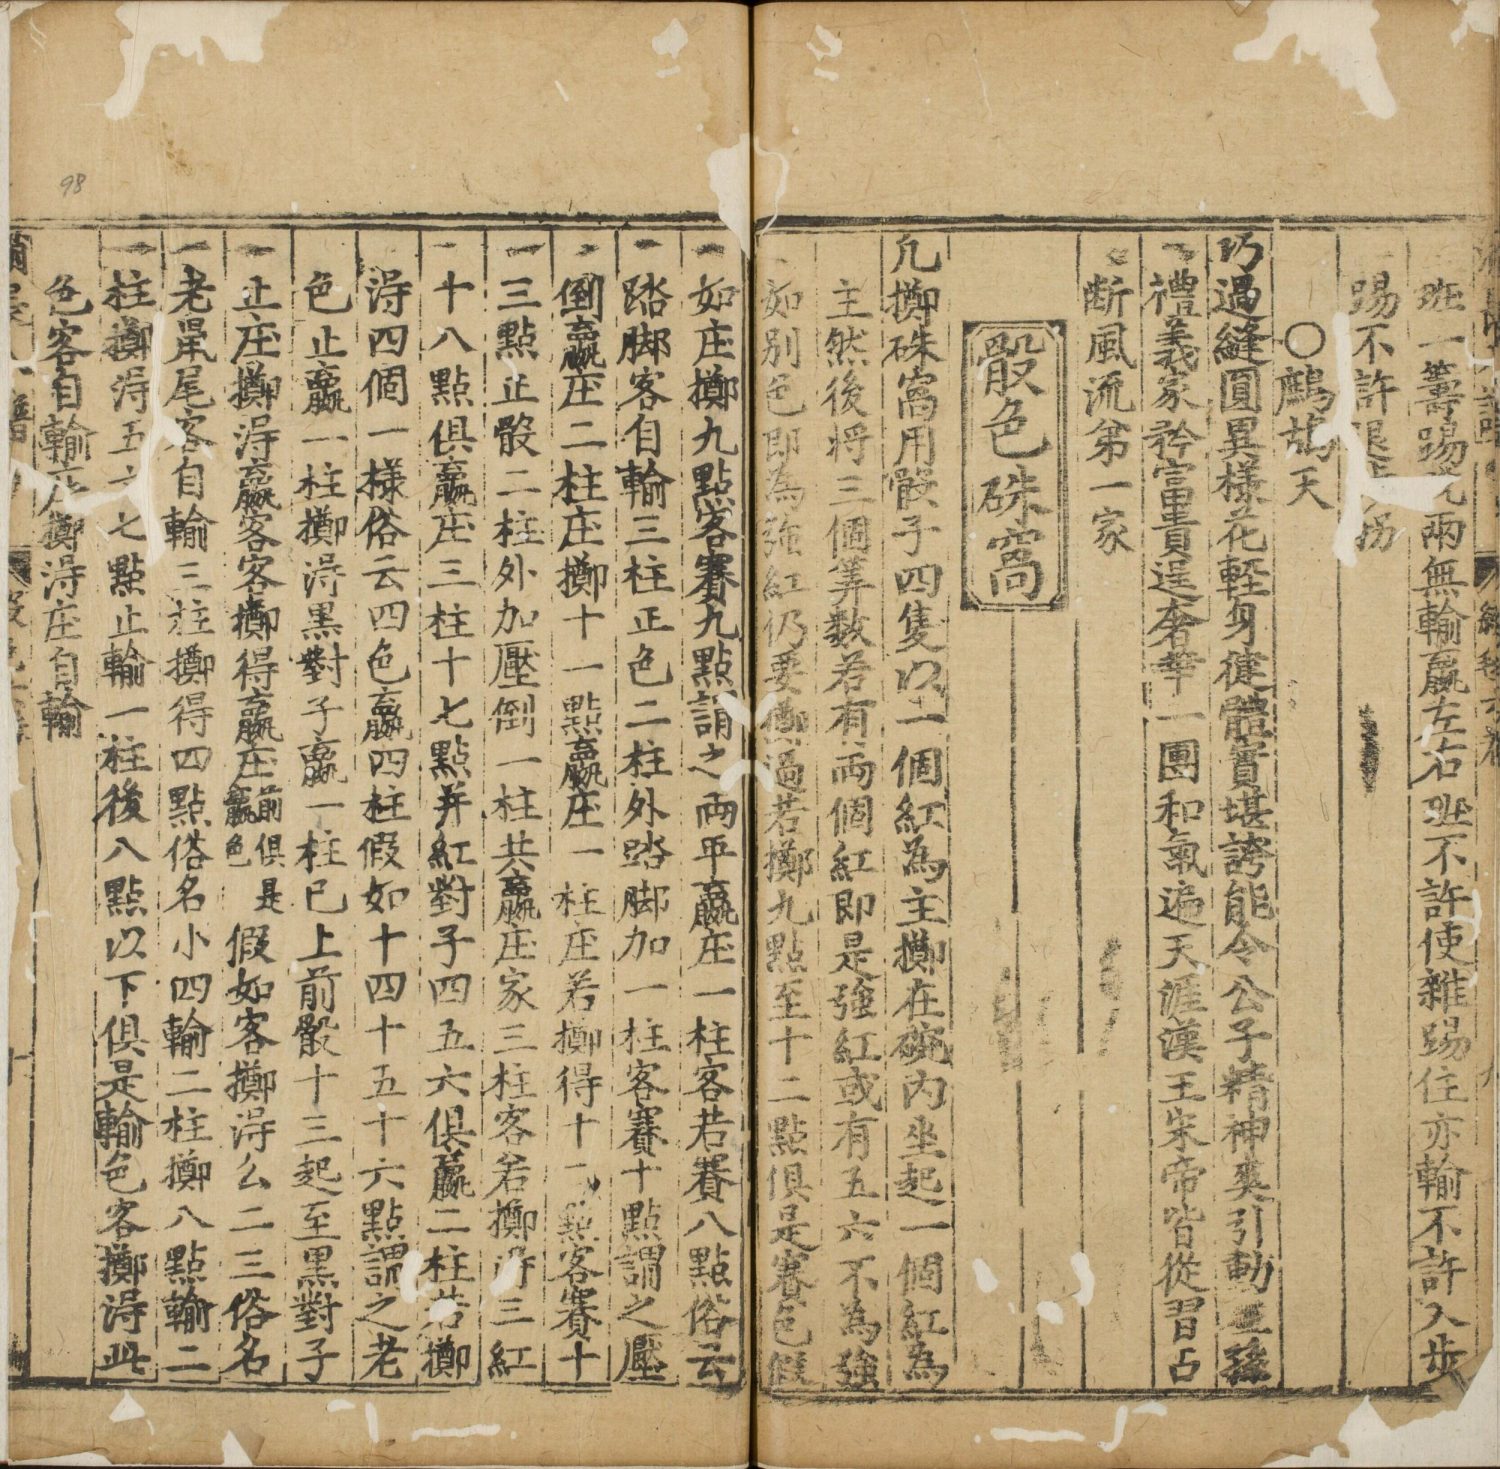 班一籌踢 兩無輸贏左右班不許使雜踢住亦輸不許入步
踢不許退 拐
〇鷓鴣天
巧過縫圓異樣花軽身健體實堪誇能令公子精神爽引動王孫
禮義家矜富貴逞奢華一團和氣遍天涯漢王宋帝皆從習占
断風流第一家
骰色硃窩
凡擲硃窩用骰子四隻以一個紅為主擲在碗内坐起一個紅為
主然後将三個筭數若有両個紅即是強紅或有五六不為強
如別色即為強紅仍要 過若擲九點至十二點俱是賽色假
一如庄擲九點客賽九點謂之両平贏庄一柱客若賽八點俗云
一踏脚客自輸三柱正色二柱外踏脚加一柱客賽十點謂之壓
倒贏庄二柱庄擲十一點贏庄一柱庄若擲得十一點客賽十
一三點止骰二柱外加壓倒一柱共贏庄家三柱客若擲淂三紅
一十八點俱贏庄三柱十七點并紅對子四五六俱贏二柱若擲
淂四個一樣俗云四色贏四柱假如十四十五十六點謂之老
色止贏一柱擲淂黑對子贏一柱已上前骰十三起至黑對子
一止庄擲淂贏客客擲得贏庄前俱是贏色假如客擲淂么二三俗名
一老鼠尾客自輸三柱擲得四點俗名小四輸二柱擲八點輸二
一柱擲淂五六七點止輸一柱後八點以下俱是輸色客擲淂此
色客自輸庄擲淂庄自輸
十
98